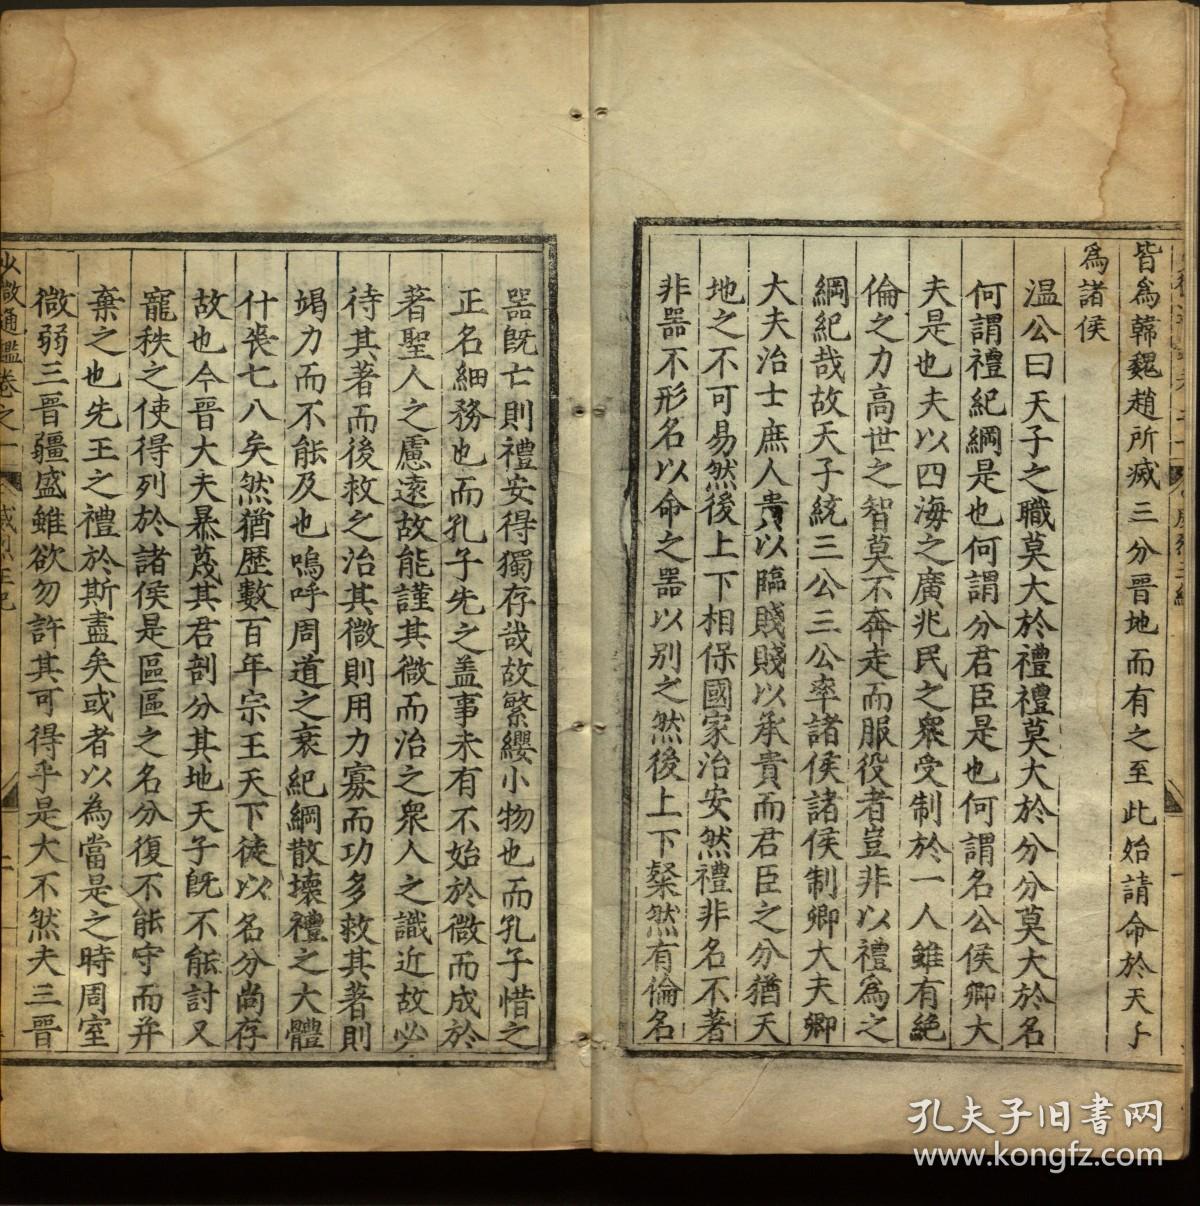 皆爲韓魏趙所滅三分晉地而有之至此始請命於天子
爲諸侯
温公曰天子之職莫大於禮禮莫大於分分莫大於名
何謂禮紀綱是也何謂分君臣是也何謂名公侯卿大
夫是也夫以四海之廣兆民之衆受制於一人雖有絶
倫之力高世之智莫不奔走而服役者豈非以禮爲之
綱紀哉故天子統三公三公率諸侯諸侯制卿大夫卿
大夫治士庶人貴以臨賤賤以承貴而君臣之分猶天
地之不可易然後上下相保國家治安然禮非名不著
非器不形名以命之器以别之然後上下粲然有倫名
器既亡則禮安得獨存哉故繁纓小物也而孔子惜之
正名細務也而孔子先之盖事未有不始於微而成於
著聖人之慮遠故能謹其微而治之衆人之識近故必
待其著而後救之治其微則用力寡而功多救其著則
竭力而不能及也嗚呼周道之衰紀綱散壞禮之大體
什喪七八矣然猶歷數百年宗王天下徒以名分尚存
故也今晉大夫暴蔑其君剖分其地天子既不能討又
寵秩之使得列於諸侯是區區之名分復不能守而并
棄之也先王之禮於斯盡矣或者以為當是之時周室
微弱三晉疆盛雖欲勿許其可得乎是大不然夫三晉
少微通鑑卷之一
威烈王紀
二
孔夫子旧书网
www.kongfz.com